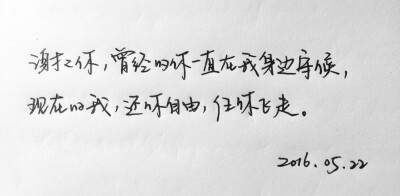 谢谢你，曾经的你一直在我身边守候，
现在的我，还你自由，任你飞走。
2016.05.22